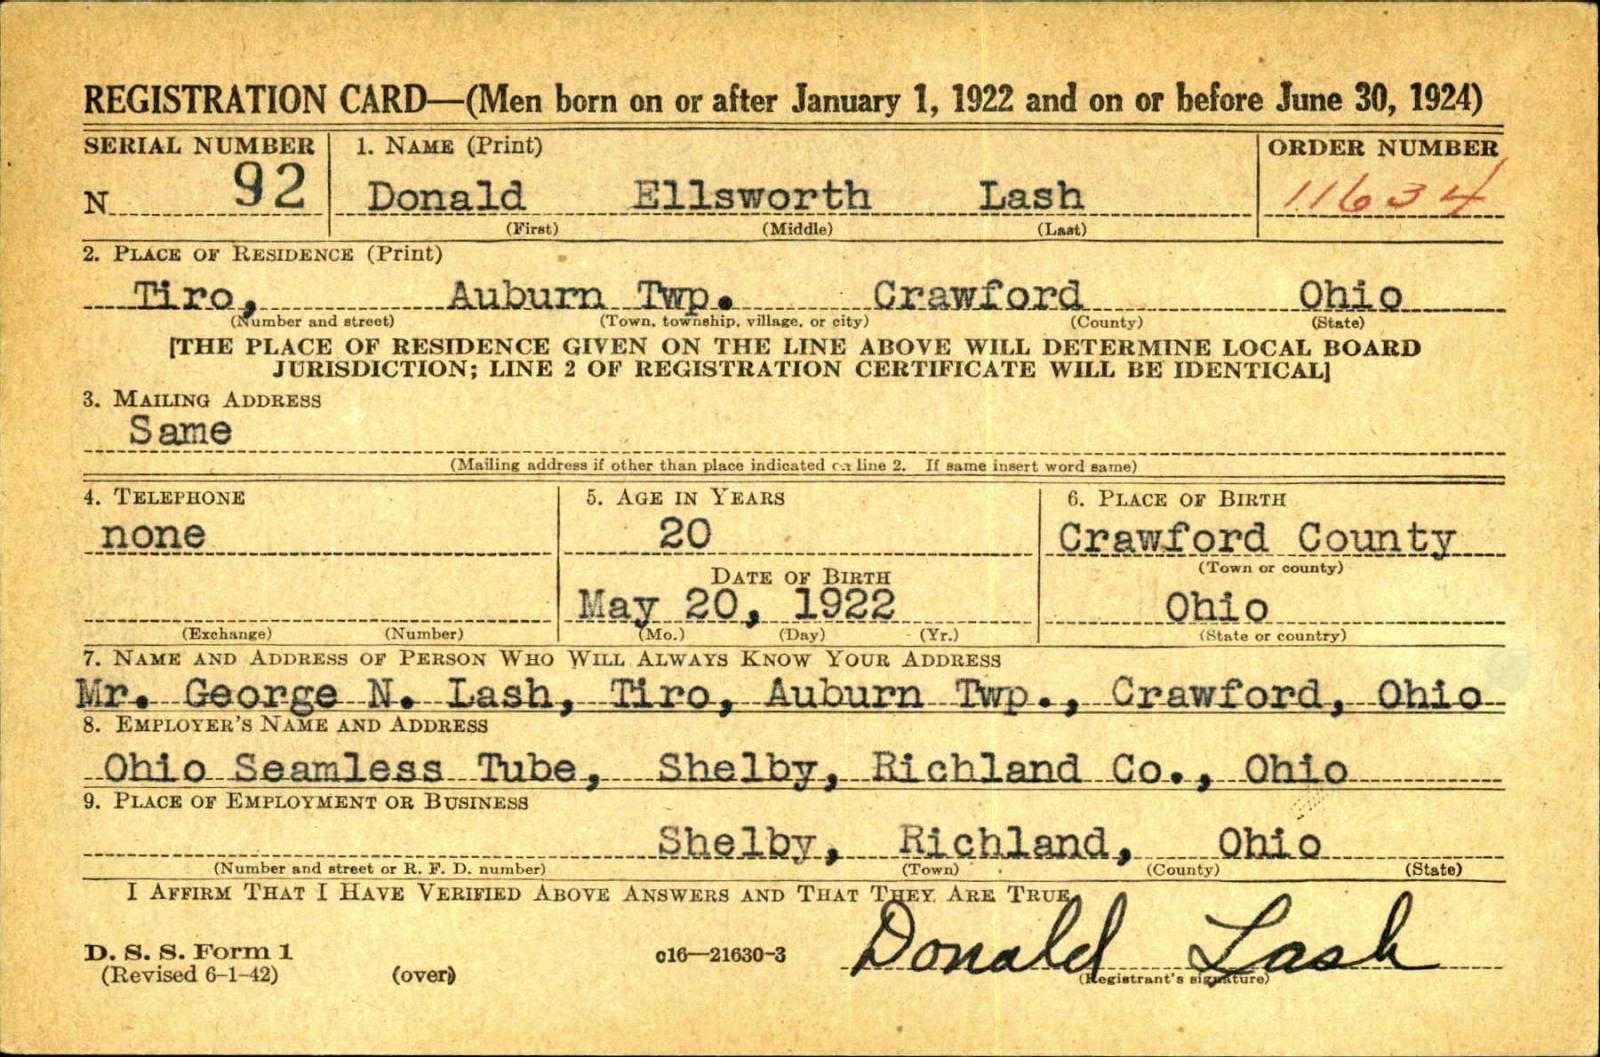 REGISTRATION CARD—(Men born on or after January 1, 1922 and on or before June 30, 1924)
SERIAL NUMBER 1. NAME (Print) ORDER NUMBER
N 92 Donald Ellsworth Lash 11634
(First) (Middle) (Last)
2. PLACE OF RESIDENCE (Print)
Tiro, Auburn Twp. Crawford Ohio
(Number and street) (Town, township, village, or city) (County) (State)
[THE PLACE OF RESIDENCE GIVEN ON THE LINE ABOVE WILL DETERMINE LOCAL BOARD
JURISDICTION; LINE 2 OF REGISTRATION CERTIFICATE WILL BE IDENTICAL]
3. MAILING ADDRESS
Same
(Mailing address if other than place indicated on line 2. If same insert word same)
4. TELEPHONE 5. AGE IN YEARS 6. PLACE OF BIRTH
none 20 Crawford County
(Town or county)
DATE OF BIRTH
May 20, 1922 Ohio
(Exchange) (Number) (Mo.) (Day) (Yr.) (State or country)
7. NAME AND ADDRESS OF PERSON WHO WILL ALWAYS KNOW YOUR ADDRESS
Mr. George N. Lash, Tiro, Auburn Twp., Crawford, Ohio
8. EMPLOYER'S NAME AND ADDRESS
Ohio Seamless Tube, Shelby, Richland Co., Ohio
9. PLACE OF EMPLOYMENT OR BUSINESS
Shelby, Richland, Ohio
(Number and street or R. F. D. number) (Town) (County) (State)
I AFFIRM THAT I HAVE VERIFIED ABOVE ANSWERS AND THAT THEY ARE TRUE.
D. S. S. Form 1 c16—21630-3 Donald Lash
(Revised 6-1-42) (over) (Registrant's signature)